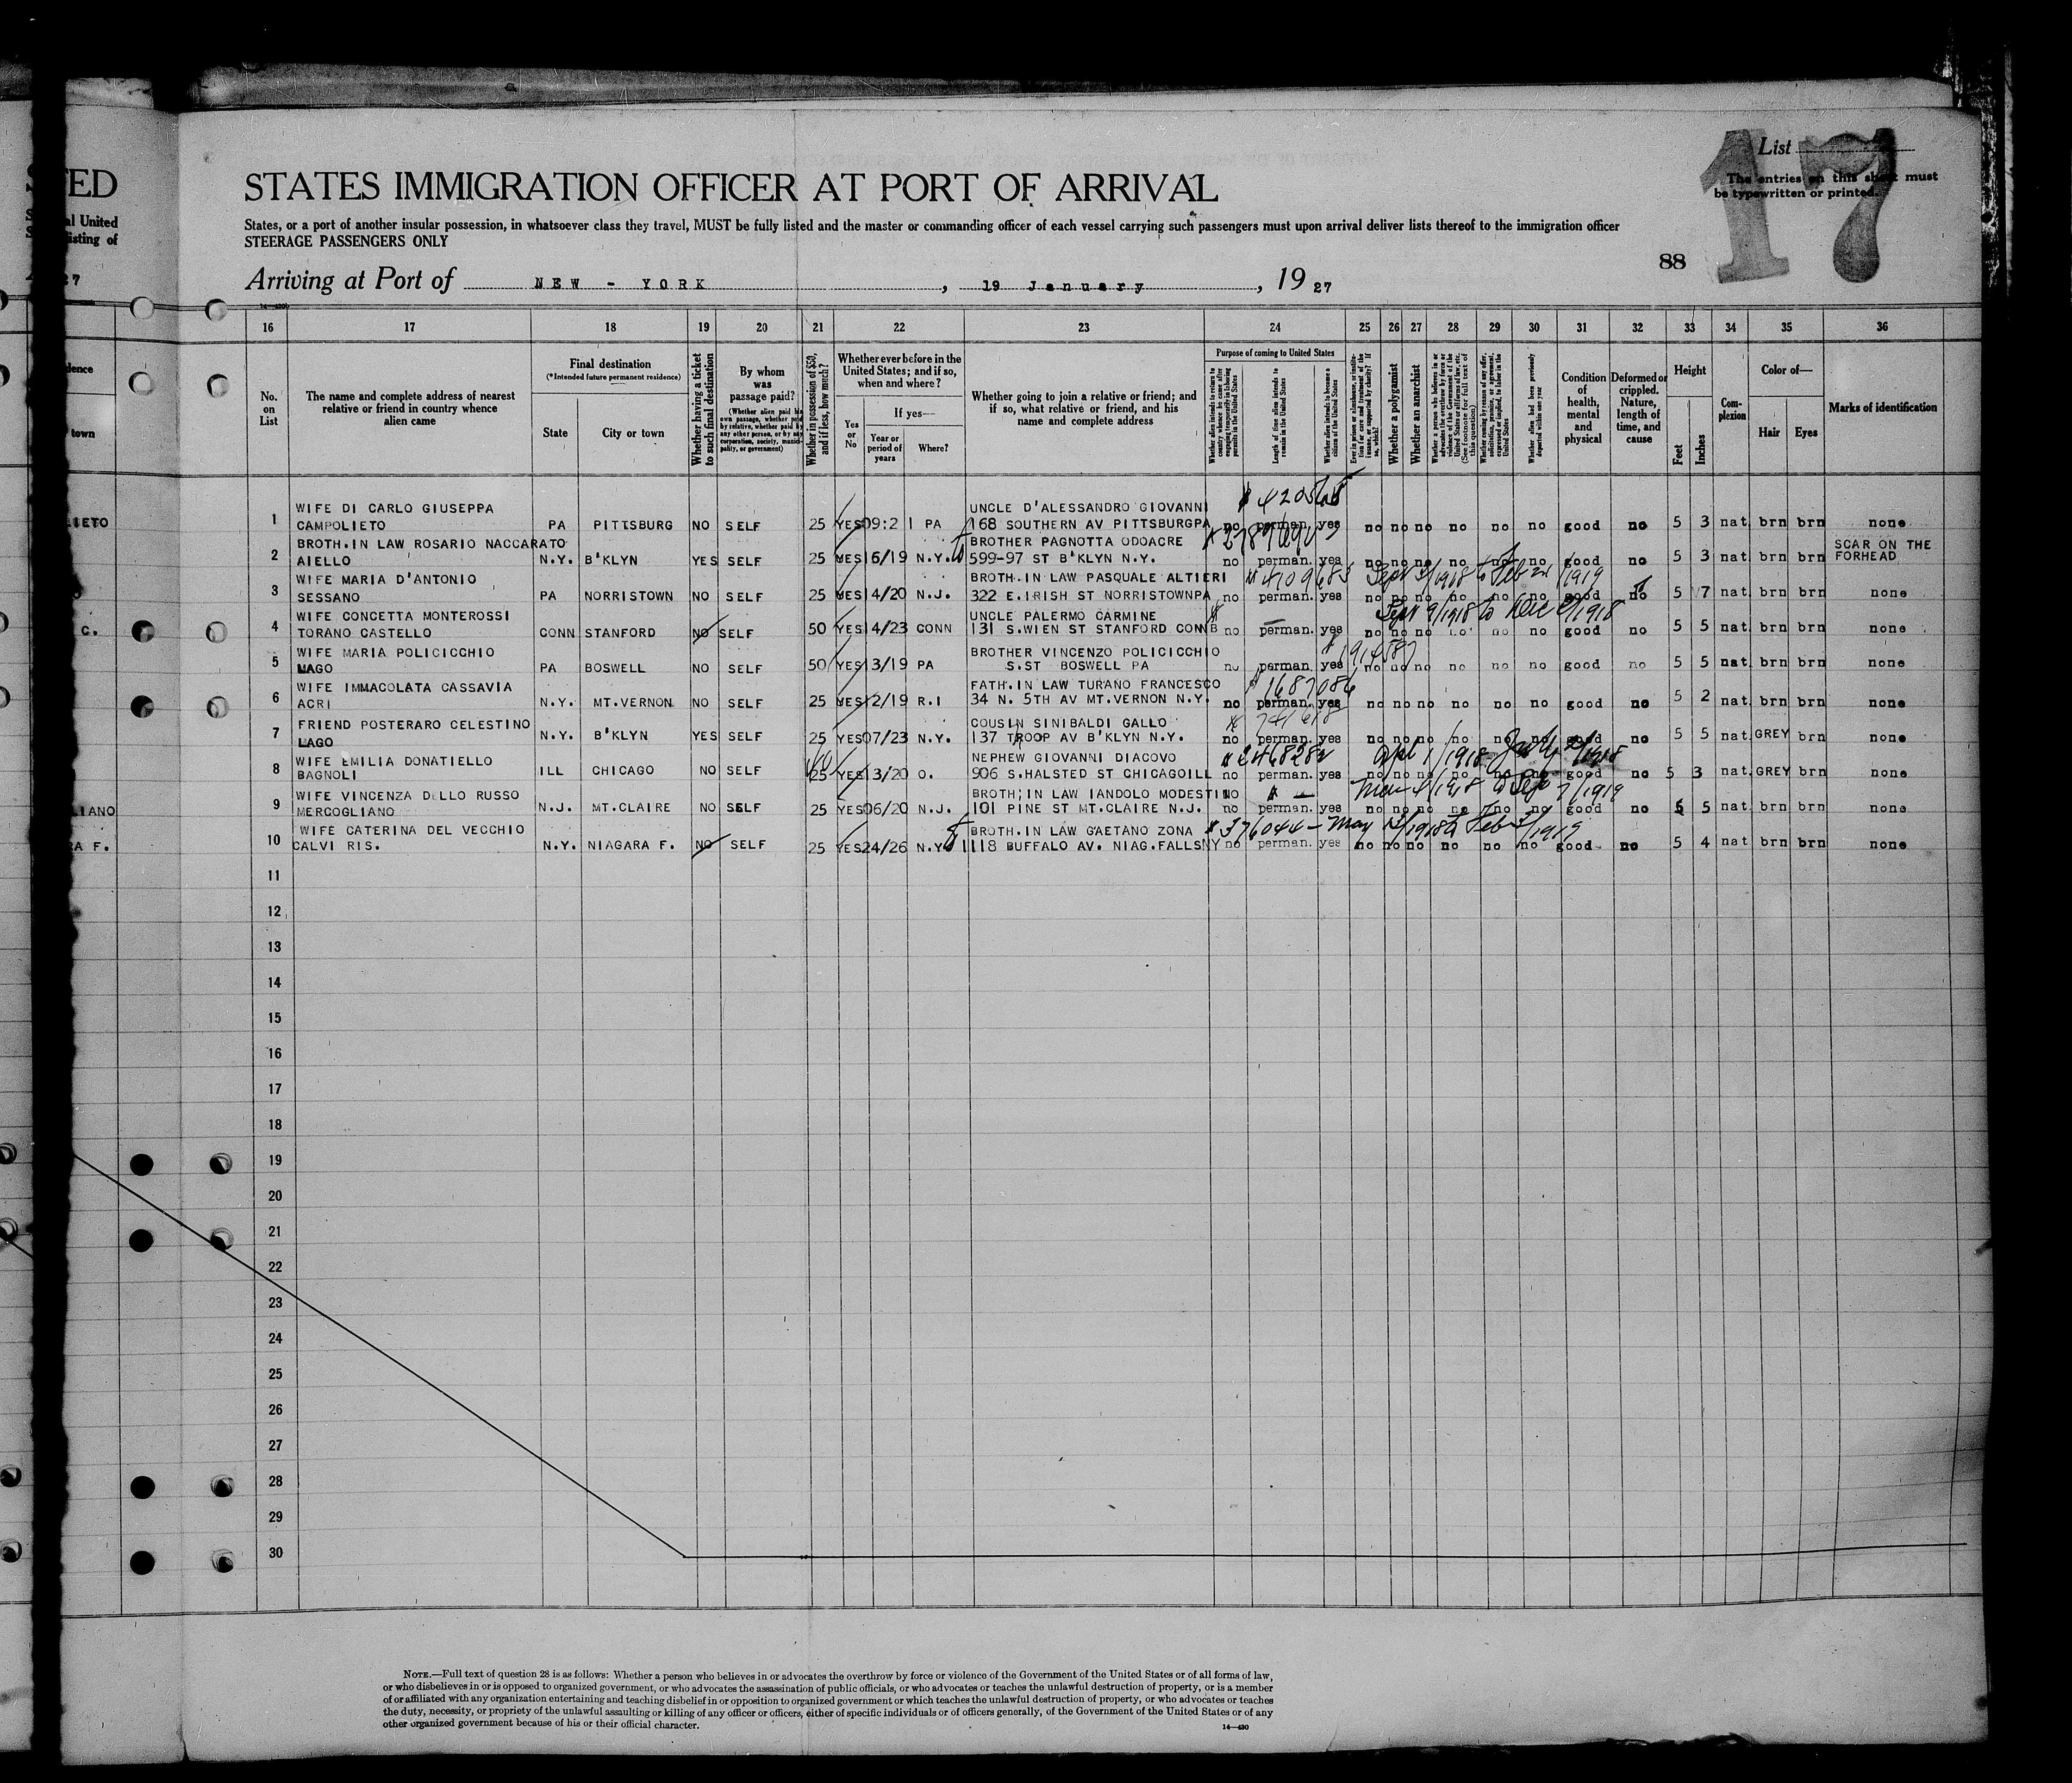 TED
al United
listing of
27
dence
town
LIETO
C.
LIANO
RA F.
17
List
The entries on this sheet must
be typewritten or printed.
STATES IMMIGRATION OFFICER AT PORT OF ARRIVAL
States, or a port of another insular possession, in whatsoever class they travel, MUST be fully listed and the master or commanding officer of each vessel carrying such passengers must upon arrival deliver lists thereof to the immigration officer
STEERAGE PASSENGERS ONLY
88
Arriving at Port of NEW - YORK , 19 January , 19 27
16 17 18 19 20 21 22 23 24 25 26 27 28 29 30 31 32 33 34 35 36
No. on List
The name and complete address of nearest relative or friend in country whence alien came
Final destination
(*Intended future permanent residence)
State
City or town
Whether having a ticket to such final destination
By whom was passage paid?
(Whether alien paid his own passage, whether paid by relative, whether paid by any other person, or by any corporation, society, municipality, or government)
Whether in possession of $50, and if less, how much?
Whether ever before in the United States; and if so, when and where?
Yes or No
If yes—
Year or period of years
Where?
Whether going to join a relative or friend; and if so, what relative or friend, and his name and complete address
Purpose of coming to United States
Whether alien intends to return to country whence he came after engaging temporarily in laboring pursuits in the United States
Length of time alien intends to remain in the United States
Whether alien intends to become a citizen of the United States
Ever in prison or almshouse, or institution for care and treatment of the insane, or supported by charity? If so, which?
Whether a polygamist
Whether an anarchist
(See footnote for full text of this question)
Whether coming by reason of any offer, solicitation, promise, or agreement, expressed or implied, to labor in the United States
Whether alien had been previously deported within one year
Condition of health, mental and physical
Deformed or crippled. Nature, length of time, and cause
Height
Feet
Inches
Complexion
Color of—
Hair
Eyes
Marks of identification
1 WIFE DI CARLO GIUSEPPA CAMPOLIETO PA PITTSBURG NO SELF 25 YES 09:21 PA UNCLE D'ALESSANDRO GIOVANNI 168 SOUTHERN AV PITTSBURG PA no perman. yes no no no no no no good no 5 3 nat. brn brn none
2 BROTH.IN LAW ROSARIO NACCARATO AIELLO N.Y. B'KLYN YES SELF 25 YES 16/19 N.Y. BROTHER PAGNOTTA ODOACRE 599-97 ST B'KLYN N.Y. no perman. yes no no no no no no good no 5 3 nat brn brn SCAR ON THE FORHEAD
3 WIFE MARIA D'ANTONIO SESSANO PA NORRISTOWN NO SELF 25 YES 14/20 N.J. BROTH.IN LAW PASQUALE ALTIERI 322 E.IRISH ST NORRISTOWN PA no perman. yes Sept 3/1918 to Feb 21/1919 no no no no no no good no 5 7 nat. brn brn none
4 WIFE CONCETTA MONTEROSSI TORANO CASTELLO CONN STANFORD NO SELF 50 YES 14/23 CONN UNCLE PALERMO CARMINE 131 S.WIEN ST STANFORD CONN no perman. yes Sept 9/1918 to Dec /1918 no no no no no no good no 5 5 nat. brn brn none
5 WIFE MARIA POLICICCHIO LAGO PA BOSWELL NO SELF 50 YES 13/19 PA BROTHER VINCENZO POLICICCHIO S.ST BOSWELL PA no perman. yes no no no no no no good no 5 5 nat. brn brn none
6 WIFE IMMACOLATA CASSAVIA ACRI N.Y. MT.VERNON NO SELF 25 YES 12/19 R.I FATH.IN LAW TURANO FRANCESCO 34 N. 5TH AV MT.VERNON N.Y. # 1687086 no perman. yes no no no no no no good no 5 2 nat. brn brn none
7 FRIEND POSTERARO CELESTINO LAGO N.Y. B'KLYN YES SELF 25 YES 07/23 N.Y. COUSIN SINIBALDI GALLO 137 TROOP AV B'KLYN N.Y. no perman. yes no no no no no no good no 5 5 nat. GREY brn none
8 WIFE EMILIA DONATIELLO BAGNOLI ILL CHICAGO NO SELF 25 YES 13/20 O. NEPHEW GIOVANNI DIACOVO 906 S.HALSTED ST CHICAGO ILL no perman. yes no no no no no no good no 5 3 nat. GREY brn none
9 WIFE VINCENZA DELLO RUSSO MERCOGLIANO N.J. MT.CLAIRE NO SELF 25 YES 06/20 N.J. BROTH;IN LAW IANDOLO MODESTINO 101 PINE ST MT.CLAIRE N.J. no perman. yes no no no no no no good no 5 5 nat. brn brn none
10 WIFE CATERINA DEL VECCHIO CALVI RIS. N.Y. NIAGARA F. NO SELF 25 YES 24/26 N.Y. BROTH.IN LAW GAETANO ZONA 1118 BUFFALO AV. NIAG.FALLS NY # 376044 - no perman. yes no no no no no no good no 5 4 nat. brn brn none
11
12
13
14
15
16
17
18
19
20
21
22
23
24
25
26
27
28
29
30
NOTE.—Full text of question 28 is as follows: Whether a person who believes in or advocates the overthrow by force or violence of the Government of the United States or of all forms of law,
or who disbelieves in or is opposed to organized government, or who advocates the assassination of public officials, or who advocates or teaches the unlawful destruction of property, or is a member
of or affiliated with any organization entertaining and teaching disbelief in or opposition to organized government or which teaches the unlawful destruction of property, or who advocates or teaches
the duty, necessity, or propriety of the unlawful assaulting or killing of any officer or officers, either of specific individuals or of officers generally, of the Government of the United States or of any
other organized government because of his or their official character.
14—430